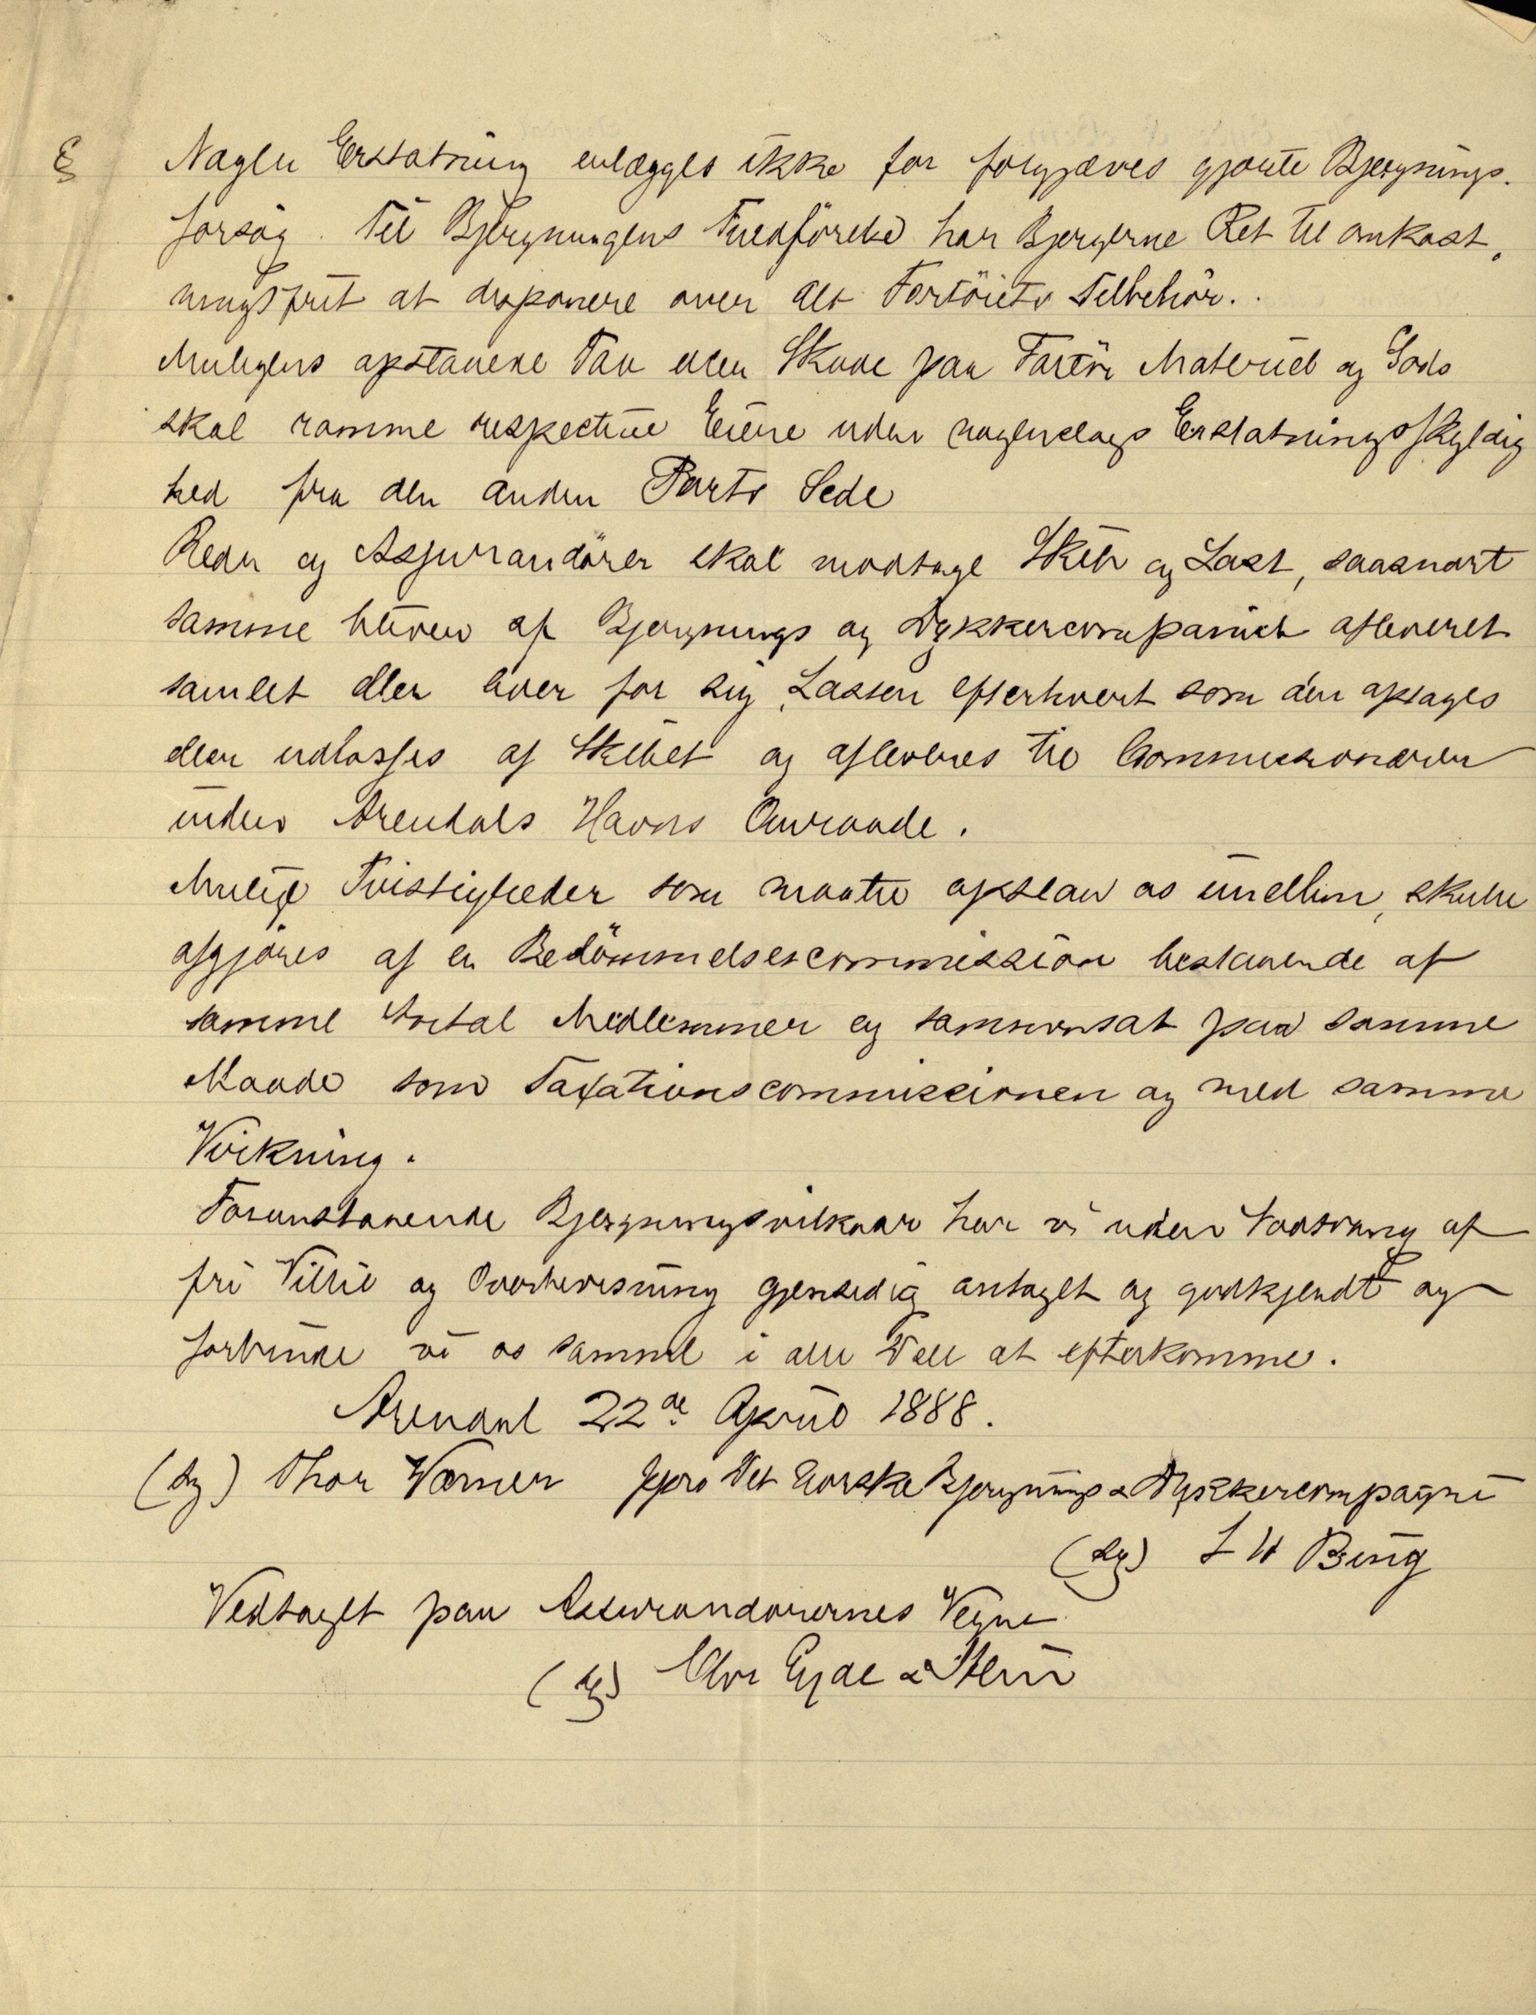 § Nogen Erstatning erlægges ikke for forgjæves gjorte Bjergnings-
forsøg. Til Bjergningens Fuldførelse har Bjergerne Ret til omkost,
ningsfrit at disponere over alt Fartöiets Tilbehör.
Muligens opstaaende Tab eller Skade paa Fartöi Materiel og Gods
skal ramme respective Eiere uden nogenslags Erstatningsskyldig
hed fra den anden Parts Side
Reder og Assurandörer skal modtage Skib og Last, saasnart
samme bliver af Bjergnings og Dykkercompaniet afleveret
samlet eller hver for sig, Lasten efterhvert som den optages
eller udlosses af Skibet og afleveres til Commissionæren
inden Arendals Havns Omraade.
Mulige Tvistigheder som maatte opstaa os imellem, skulle
afgjöres af en Bedömmelsescommission bestaaende af
samme Antal Medlemmer og sammensat paa samme
Maade som Taxationscommissionen og med samme
Virkning.
Foranstaaende Bjergningsvilkaar har vi uden Tvang af
fri Villie og Overbevisning gjensidig antaget og godkjendt og
forbinde vi os samme i alle Dele at efterkomme.
Arendal 22de April 1888.
(sg) Thor Wærner pro Det norske Bjergnings & Dykkercompagni
(sg) L W Bing
Vedtaget paa Assurandørernes Vegne
(sg) Chr Eyde & Sön